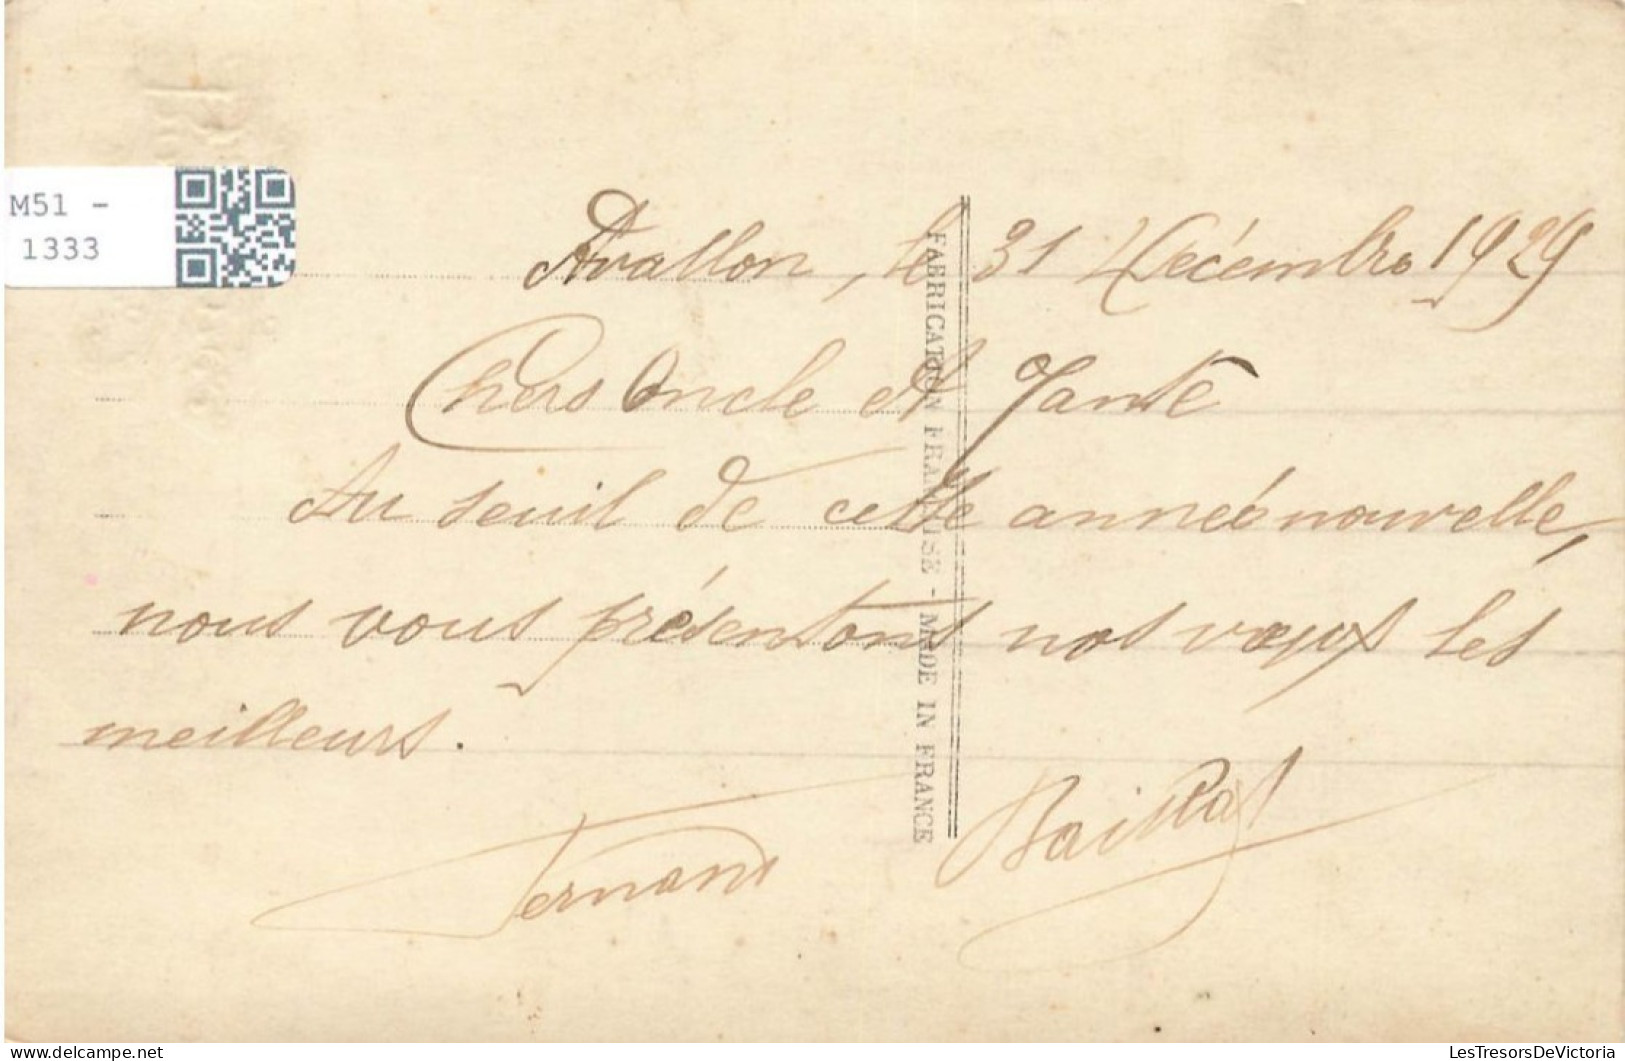 M51 -
1333
Avallon, le 31 Décembre 1929
Chers Oncle et Tante
Au seuil de cette année nouvelle,
nous vous présentons nos vœux les
meilleurs.
Fernand
FABRICATION FRANÇAISE - MADE IN FRANCE
LesTresorsDeVictoria